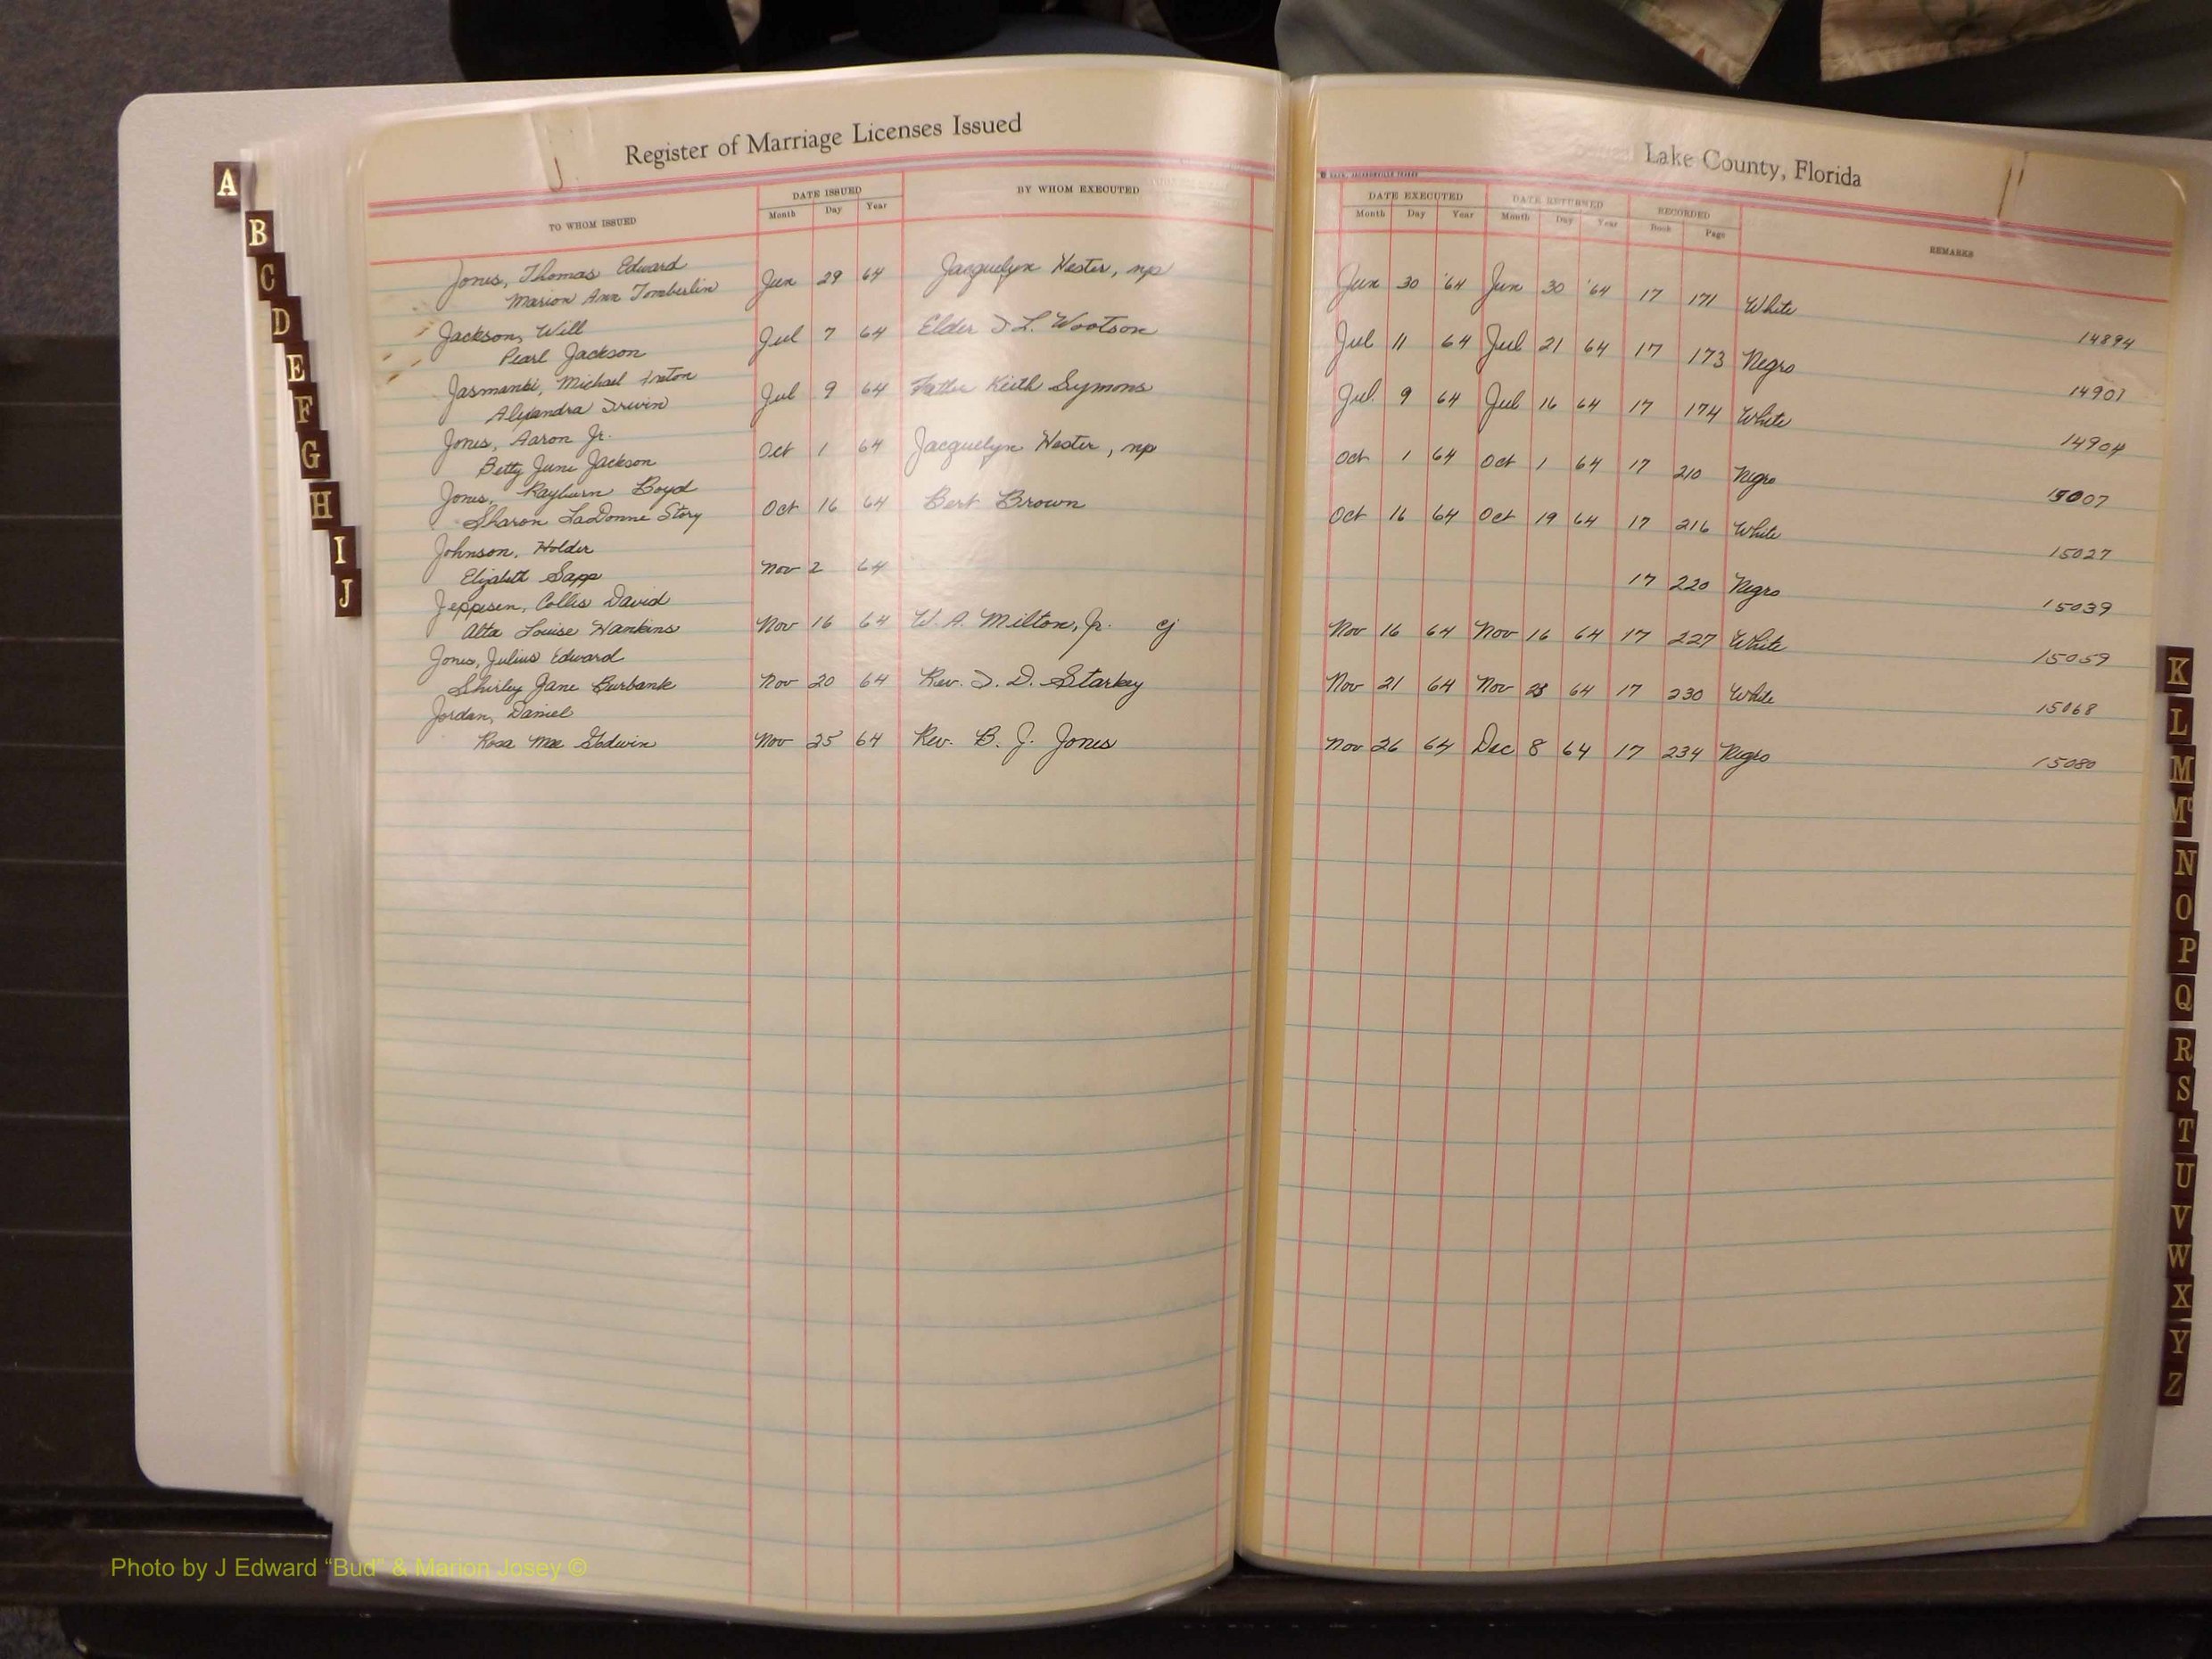 Register of Marriage Licenses Issued
Lake County, Florida
TO WHOM ISSUED
DATE ISSUED
Month Day Year
BY WHOM EXECUTED
DATE EXECUTED
Month Day Year
DATE RETURNED
Month Day Year
RECORDED
Book Page
REMARKS
Jones, Thomas Edward
Marion Ann Tomberlin Jun 29 64 Jacquelyn Hester, np Jun 30 '64 Jun 30 '64 17 171 White
14894
Jackson, Will
Pearl Jackson Jul 7 64 Elder L. Wootson Jul 11 64 Jul 21 64 17 173 Negro
14901
Michael
Irwin Jul 9 64 Father Keith Symons Jul 9 64 Jul 16 64 17 174 White
14904
Jones, Aaron Jr.
Betty June Jackson Oct 1 64 Jacquelyn Hester, np Oct 1 64 Oct 1 64 17 210 Negro
15007
Jones, Rayburn Boyd
Sharon LaDonne Story Oct 16 64 Bert Brown Oct 16 64 Oct 19 64 17 216 White
15027
Johnson, Holder
Elizabeth Sapp Nov 2 64 17 220 Negro
15039
Jeppesen, Collis David
Alta Louise Hankins Nov 16 64 W. A. Milton, Jr. cj Nov 16 64 Nov 16 64 17 227 White
15059
Jones, Julius Edward
Shirley Jane Burbank Nov 20 64 Rev. D. Starkey Nov 21 64 Nov 64 17 230 White
15068
Jordan, Daniel
Rosa Mae Godwin Nov 25 64 Rev. B. J. Jones Nov 26 64 Dec 8 64 17 234 Negro
15080
A
B
C
D
E
F
G
H
I
J
K
L
M
Mc
N
O
P
Q
R
S
T
U
V
W
X
Y
Z
Photo by J Edward “Bud” & Marion Josey ©